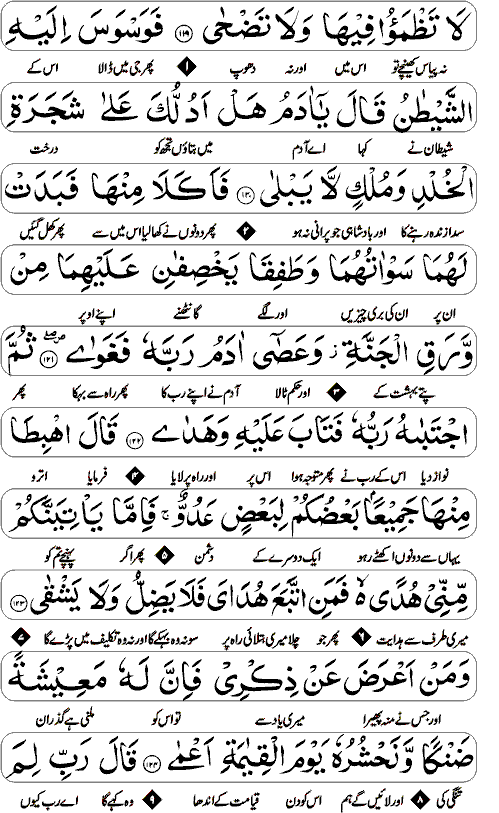 لَا تَظْمَؤُا فِيْهَا وَلَا تَضْحٰى ﴿۱۱۹﴾ فَوَسْوَسَ اِلَيْهِ
نہ پیاس کھینچے تو اس میں اور نہ دھوپ ۱ پھر جی میں ڈالا اس کے
الشَّيْطٰنُ قَالَ يٰۤاٰدَمُ هَلْ اَدُلُّكَ عَلٰى شَجَرَةِ
شیطان نے کہا اے آدم میں بتاؤں تجھ کو درخت
الْخُلْدِ وَمُلْكٍ لَّا يَبْلٰى ﴿۱۲۰﴾ فَاَكَلَا مِنْهَا فَبَدَتْ
سدا زندہ رہنے کا اور بادشاہی جو پرانی نہ ہو ۲ پھر دونوں نے کھا لیا اس میں سے پھر کھل گئیں
لَهُمَا سَوْاٰتُهُمَا وَطَفِقَا يَخْصِفٰنِ عَلَيْهِمَا مِنْ
ان پر ان کی بری چیزیں اور لگے گانٹھنے اپنے اوپر
وَّرَقِ الْجَنَّةِ ز وَعَصٰۤى اٰدَمُ رَبَّهٗ فَغَوٰى ﴿۱۲۱﴾ ثُمَّ
پتے بہشت کے ۳ اور حکم ٹالا آدم نے اپنے رب کا پھر راہ سے بہکا پھر
اجْتَبٰىهُ رَبُّهٗ فَتَابَ عَلَيْهِ وَهَدٰى ﴿۱۲۲﴾ قَالَ اهْبِطَا
نواز دیا اس کے رب نے پھر متوجہ ہوا اس پر اور راہ پر لایا ۴ فرمایا اترو
مِنْهَا جَمِيْعًۢا بَعْضُكُمْ لِبَعْضٍ عَدُوٌّ ۚ فَاِمَّا يَاْتِيَنَّكُمْ
یہاں سے دونوں اکٹھے رہو ایک دوسرے کے دشمن ۵ پھر اگر پہنچے تم کو
مِّنِّيْ هُدًى ە فَمَنِ اتَّبَعَ هُدَايَ فَلَا يَضِلُّ وَلَا يَشْقٰى ﴿۱۲۳﴾
میری طرف سے ہدایت ۶ پھر جو چلا میری بتلائی راہ پر سو نہ وہ بہکے گا اور نہ وہ تکلیف میں پڑے گا ۷
وَمَنْ اَعْرَضَ عَنْ ذِكْرِيْ فَاِنَّ لَهٗ مَعِيْشَةً
اور جس نے منہ پھیرا میری یاد سے تو اس کو ملنی ہے گذران
ضَنْكًا وَّنَحْشُرُهٗ يَوْمَ الْقِيٰمَةِ اَعْمٰى ﴿۱۲۴﴾ قَالَ رَبِّ لِمَ
تنگی کی ۸ اور لائیں گے ہم اس کو دن قیامت کے اندھا ۹ وہ کہے گا اے رب کیوں